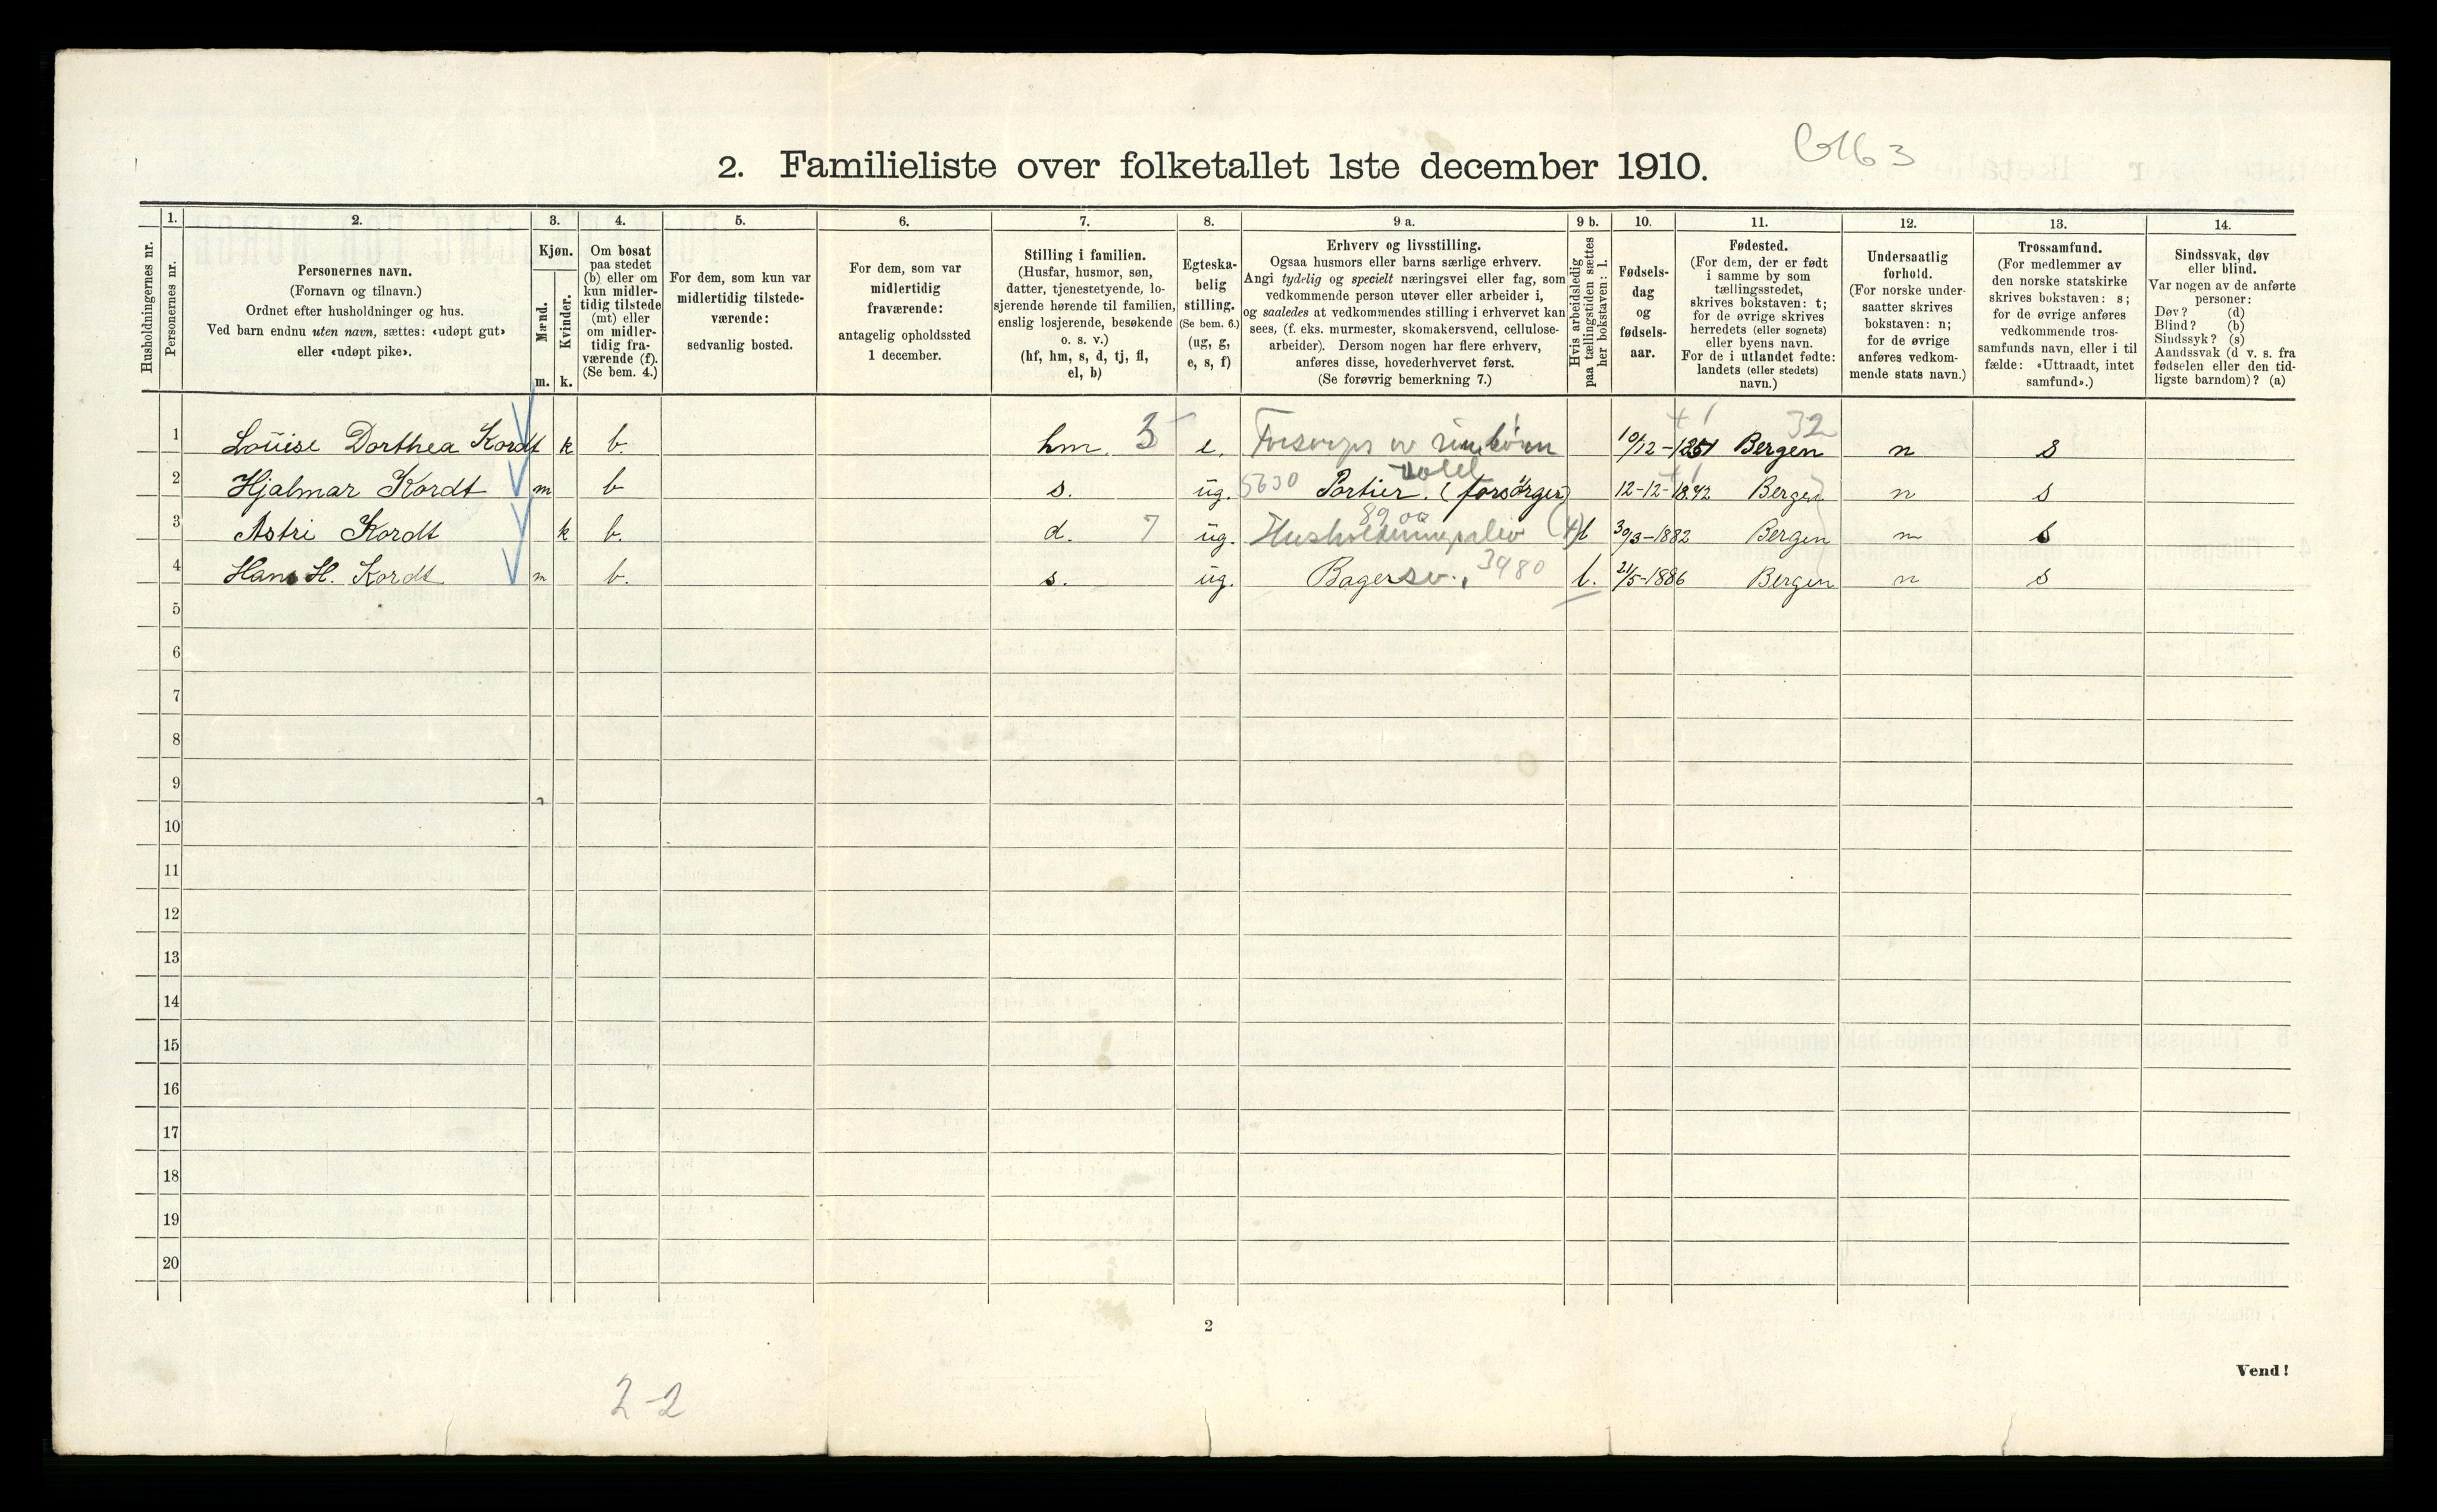 2. Familieliste over folketallet 1ste december 1910.
1. 2. 3. 4. 5. 6. 7. 8. 9 a. 9 b. 10. 11. 12. 13. 14.
Husholdningernes nr.
Personernes nr.
Personernes navn.
(Fornavn og tilnavn.)
Ordnet efter husholdninger og hus.
Ved barn endnu uten navn, sættes: «udøpt gut»
eller «udøpt pike».
Kjøn.
Mænd.
m.
Kvinder.
k.
Om bosat
paa stedet
(b) eller om
kun midler-
tidig tilstede
(mt) eller
om midler-
tidig fra-
værende (f).
(Se bem. 4.)
For dem, som kun var
midlertidig tilstede-
værende:
sedvanlig bosted.
For dem, som var
midlertidig
fraværende:
antagelig opholdssted
1 december.
Stilling i familien.
(Husfar, husmor, søn,
datter, tjenestetyende, lo-
sjerende hørende til familien,
enslig losjerende, besøkende
o. s. v.)
(hf, hm, s, d, tj, fl,
el, b)
Egteska-
belig
stilling.
(Se bem. 6.)
(ug, g,
e, s, f)
Erhverv og livsstilling.
Ogsaa husmors eller barns særlige erhverv.
Angi tydelig og specielt næringsvei eller fag, som
vedkommende person utøver eller arbeider i,
og saaledes at vedkommendes stilling i erhvervet kan
sees, (f. eks. murmester, skomakersvend, cellulose-
arbeider). Dersom nogen har flere erhverv,
anføres disse, hovederhvervet først.
(Se forøvrig bemerkning 7.)
Hvis arbeidsledig
paa tællingstiden sættes
her bokstaven: l.
Fødsels-
dag
og
fødsels-
aar.
Fødested.
(For dem, der er født
i samme by som
tællingsstedet,
skrives bokstaven: t;
for de øvrige skrives
herredets (eller sognets)
eller byens navn.
For de i utlandet fødte:
landets (eller stedets)
navn.)
Undersaatlig
forhold.
(For norske under-
saatter skrives
bokstaven: n;
for de øvrige
anføres vedkom-
mende stats navn.)
Trossamfund.
(For medlemmer av
den norske statskirke
skrives bokstaven: s;
for de øvrige anføres
vedkommende tros-
samfunds navn, eller i til
fælde: «Uttraadt, intet
samfund».)
Sindssvak, døv
eller blind.
Var nogen av de anførte
personer:
Døv? (d)
Blind? (b)
Sindssyk? (s)
Aandssvak (d v. s. fra
fødselen eller den tid-
ligste barndom)? (a)
1 Louise Dorthea Kordt k b. hm. 3 e. Forsørges av sine børn 10/12-1851 Bergen 32 n s
2 Hjalmar Kordt m b s. ug. 5630 Portier. (forsørger) 12-12-18 Bergen n s
3 Astri Kordt k b. d. 7 ug. 8900 Husholdningselev l 30/3-1882 Bergen n s
4 Hans H. Kordt m b. s. ug. Bagersv. 3980 l. 21/5-1886 Bergen n s
5
6
7
8
9
10
11
12
13
14
15
16
17
18
19
20
2
Vend!
2-2